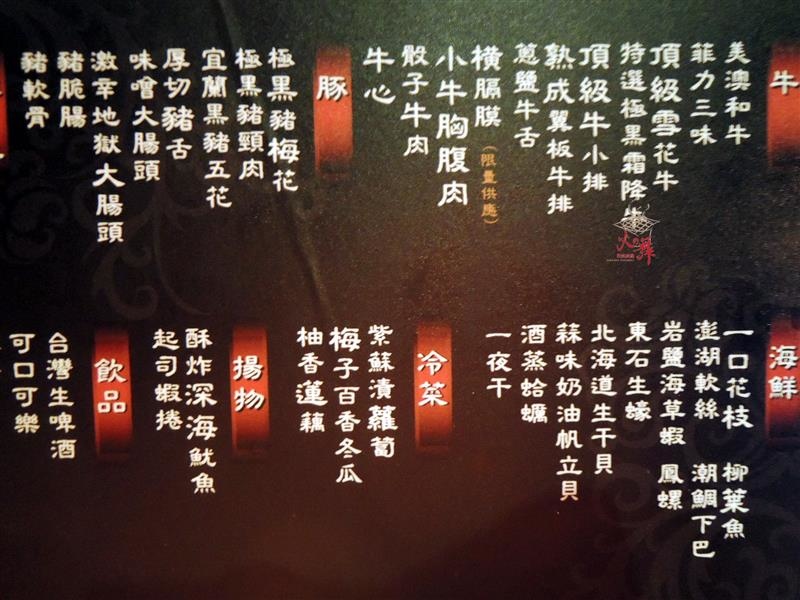 牛
美澳和牛
菲力三味
頂級雪花牛
特選極黑霜降牛
頂級牛小排
熟成翼板牛排
蔥鹽牛舌
橫膈膜(限量供應)
小牛胸腹肉
骰子牛肉
牛心
豚
極黑豬梅花
極黑豬頸肉
宜蘭黑豬五花
厚切豬舌
味噌大腸頭
激辛地獄大腸頭
豬脆腸
豬軟骨
海鮮
一口花枝 柳葉魚
澎湖軟絲 潮鯛下巴
岩鹽海草蝦 鳳螺
東石生蠔
北海道生干貝
蒜味奶油帆立貝
酒蒸蛤蠣
一夜干
冷菜
紫蘇漬蘿蔔
梅子百香冬瓜
柚香蓮藕
揚物
酥炸深海魷魚
起司蝦捲
飲品
台灣生啤酒
可口可樂